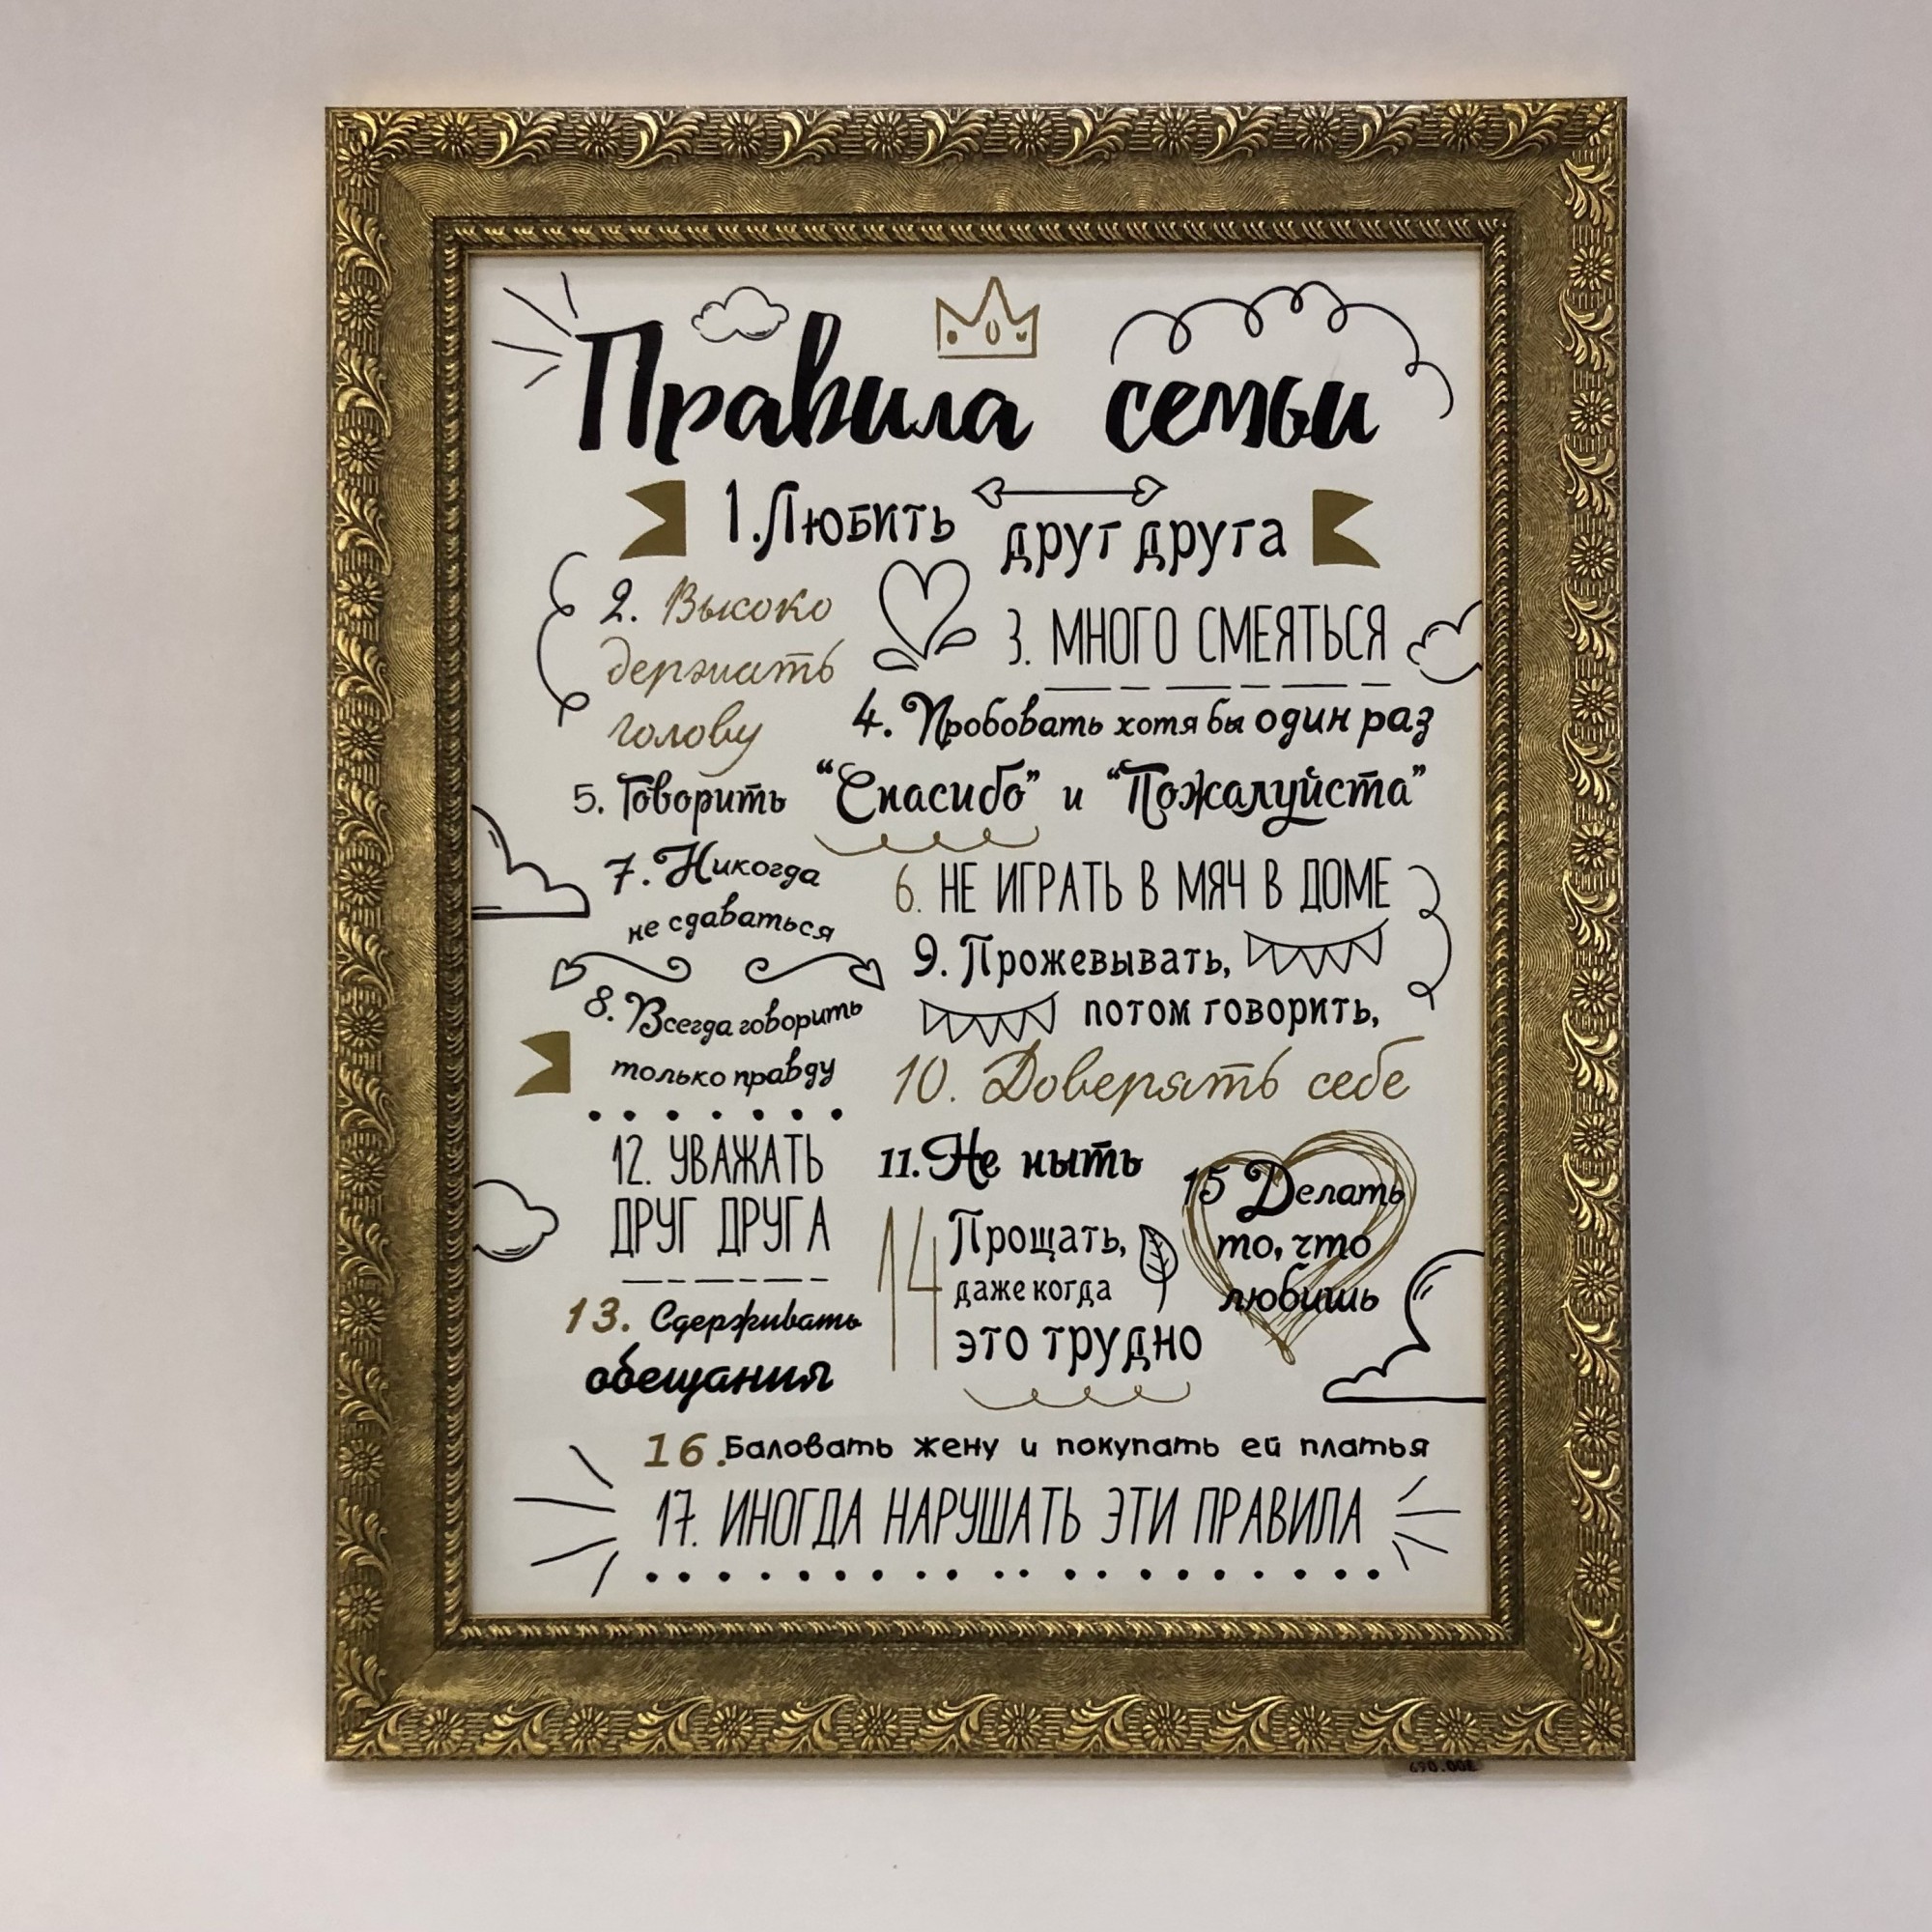 Правила семьи
1. Любить друг друга
2. Высоко
держать
голову
3. МНОГО СМЕЯТЬСЯ
4. Пробовать хотя бы один раз
5. Говорить “Спасибо” и “Пожалуйста”
6. НЕ ИГРАТЬ В МЯЧ В ДОМЕ
7. Никогда
не сдаваться
8. Всегда говорить
только правду
9. Прожевывать,
потом говорить,
10. Доверять себе
11. Не ныть
12. УВАЖАТЬ
ДРУГ ДРУГА
13. Сдерживать
обещания
14 Прощать,
даже когда
это трудно
15 Делать
то, что
любишь
16. Баловать жену и покупать ей платья
17. ИНОГДА НАРУШАТЬ ЭТИ ПРАВИЛА